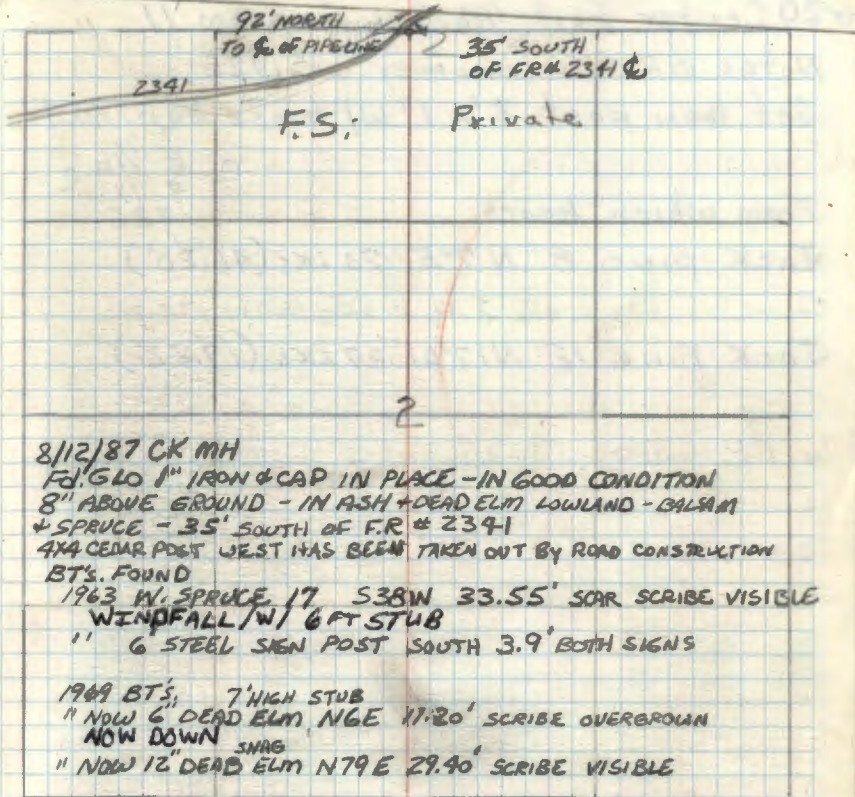 92' NORTH
TO ℄ OF PIPELINE
35' SOUTH
OF FR# 2341 ℄
2341
F.S.
Private
2
8/12/87 CK MH
Fd. GLO 1" IRON & CAP IN PLACE - IN GOOD CONDITION
8" ABOVE GROUND - IN ASH + DEAD ELM LOWLAND - BALSAM
& SPRUCE - 35' SOUTH OF F.R # 2341
4X4 CEDAR POST WEST HAS BEEN TAKEN OUT BY ROAD CONSTRUCTION
BT's. FOUND
1963 W. SPRUCE 17 S38W 33.55' SCAR SCRIBE VISIBLE
WINDFALL /W/ 6 FT STUB
" 6' STEEL SIGN POST SOUTH 3.9' BOTH SIGNS
1949 BT's, 7' HIGH STUB
" NOW 6" DEAD ELM N6E 17.20' SCRIBE OVERGROWN
NOW DOWN SNAG
" NOW 12" DEAD ELM N79E 29.40' SCRIBE VISIBLE